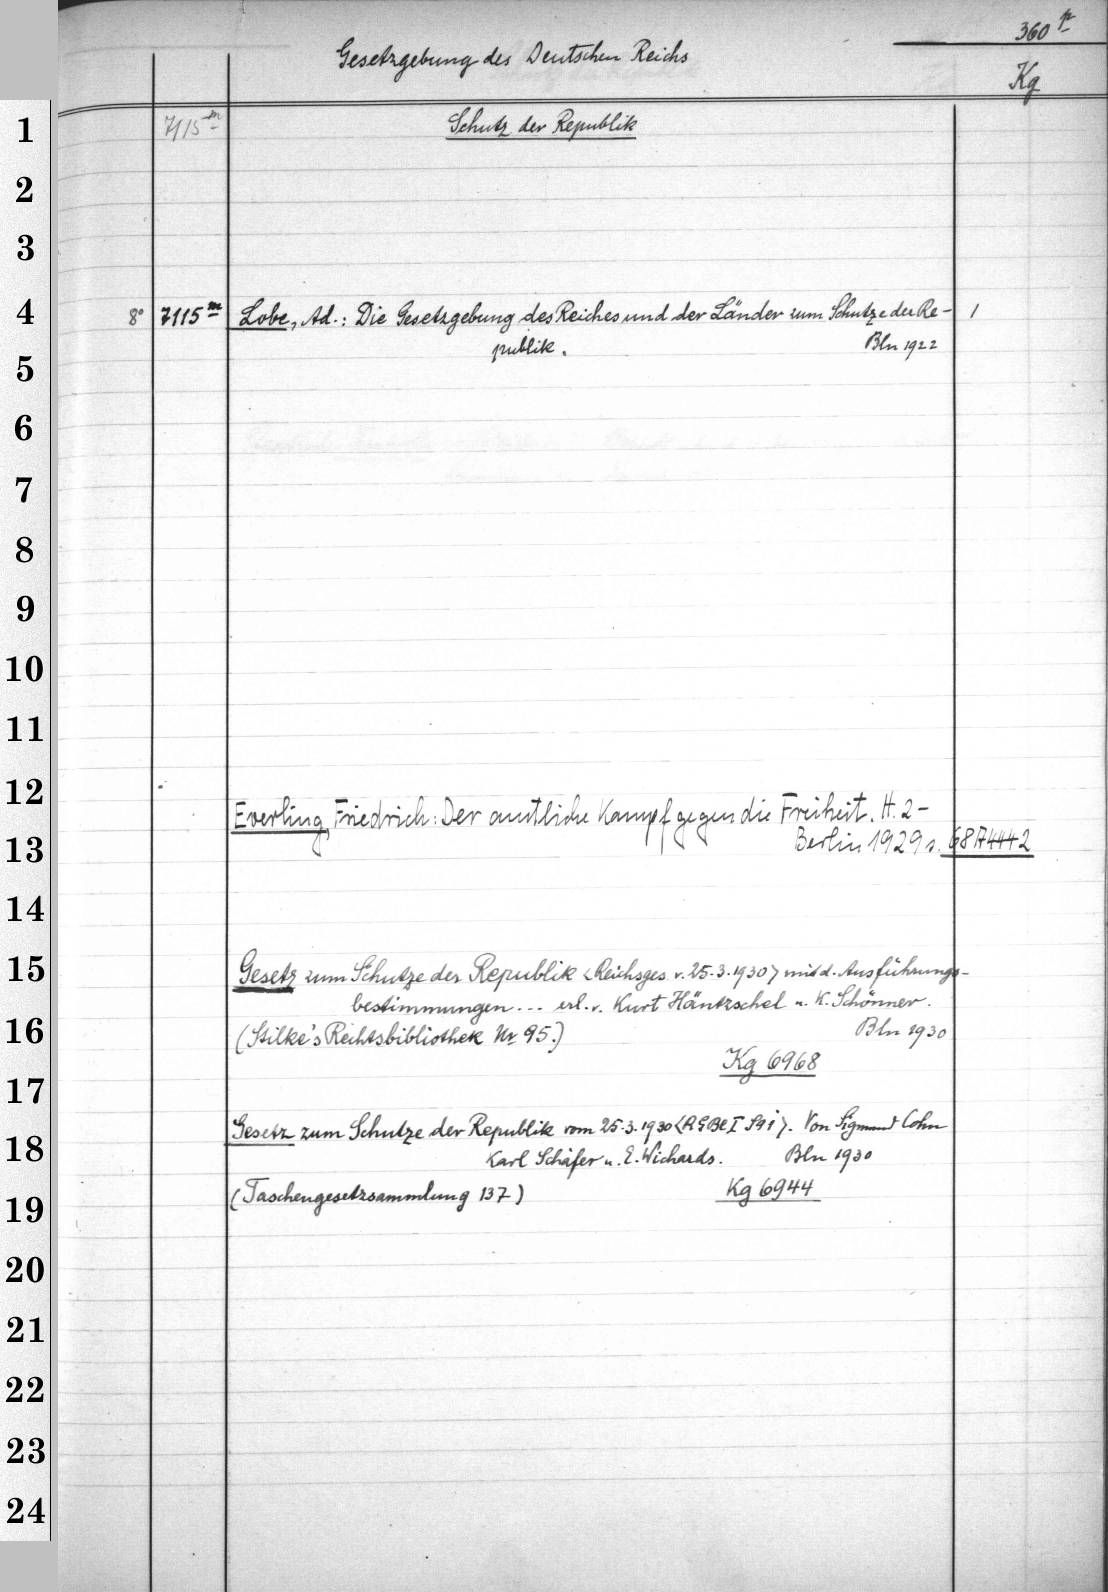 360 p
Gesetzgebung des Deutschen Reichs
Kg
1 7115 m Schutz der Republik
2
3
4 8° 7115 m Lobe, Ad.: Die Gesetzgebung des Reiches und der Länder zum Schutze der Re- 1
publik. Bln 1922
5
6
7
8
9
10
11
12
Everling, Friedrich: Der amtliche Kampf gegen die Freiheit. H. 2-
13 Berlin 1929 s. 68 A 4442
14
15 Gesetz zum Schutze der Republik <Reichsges. v. 25.3.1930> mit d. Ausführungs-
bestimmungen... erl. v. Kurt Häntzschel u. K. Schönner.
16 (Stilke's Rechtsbibliothek Nr 95.) Bln 1930
Kg 6968
17
Gesetz zum Schutze der Republik vom 25.3.1930 <RGBl I S 91>. Von Sigmund Cohn
18 Karl Schäfer u. E. Wichards. Bln 1930
19 (Taschengesetzsammlung 137) Kg 6944
20
21
22
23
24